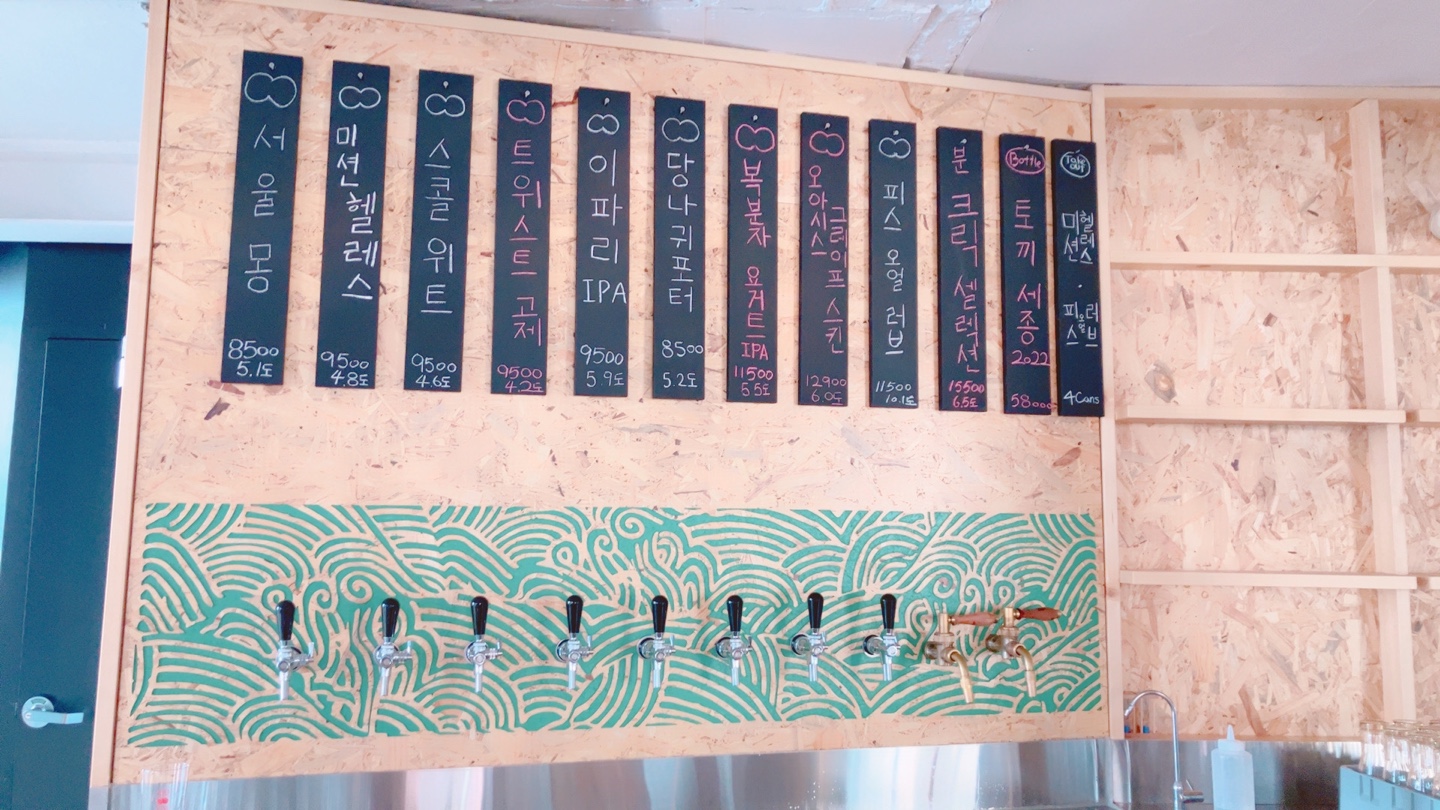 서울 몽
8500
5.1도
미션헬레스
9500
4.8도
스콜 위트
9500
4.6도
트위스트 고제
9500
4.2도
이파리
IPA
9500
5.9도
당나귀포터
8500
5.2도
복분자 요거트
IPA
11500
5.5도
오아시스
그레이프 스킨
12900
6.0도
피스 오얼 러브
11500
10.1도
분 크릭 셀렉션
15500
6.5도
Bottle
토끼 세종
2022
58000
Take
OUT
미션
헬레스
·
피스
오얼
러브
4Cans